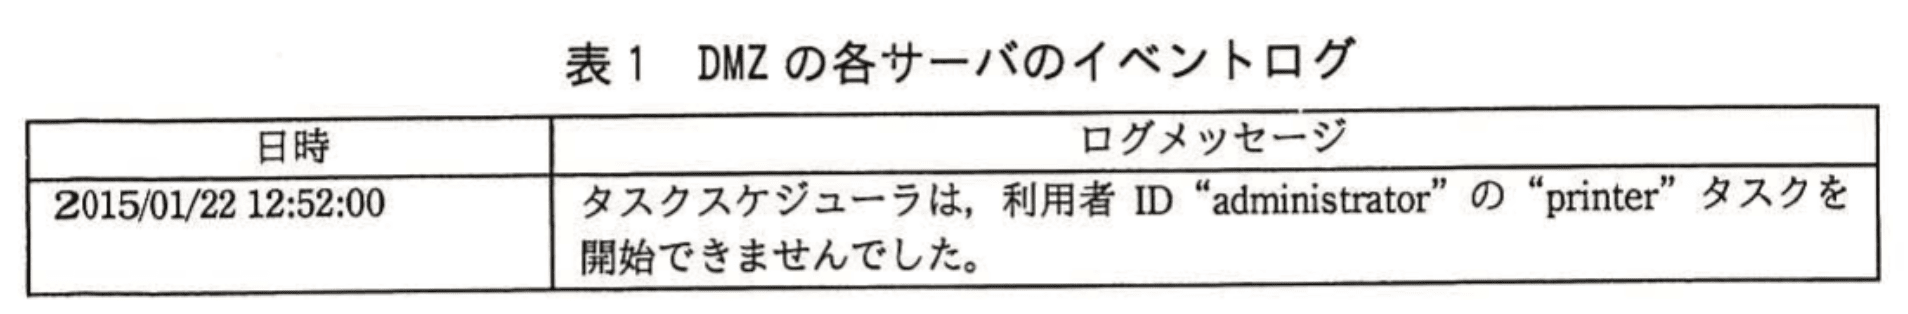 表1 DMZ の各サーバのイベントログ
日時
ログメッセージ
2015/01/22 12:52:00
タスクスケジューラは，利用者 ID “administrator” の “printer” タスクを
開始できませんでした。